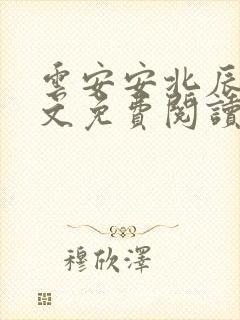 雲安安北辰
文免費閱讀
穆欣澤